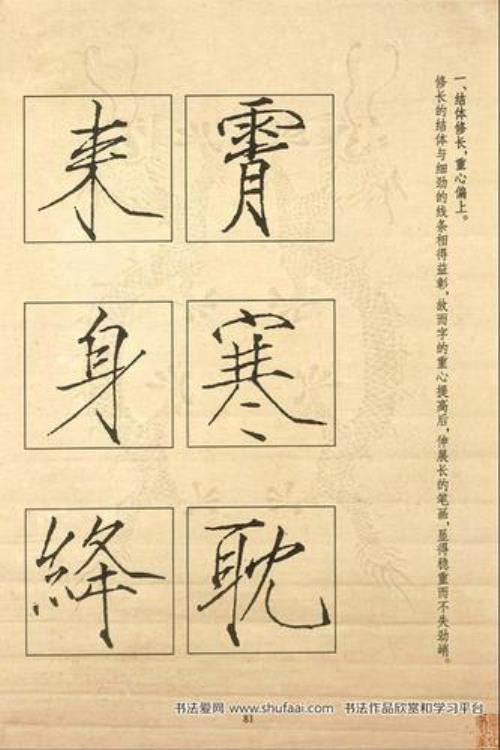 一、结体修长，重心偏上。
修长的结体与细劲的线条相得益彰，故而字的重心提高后，伸展长的笔画，显得稳重而不失劲峭。
霄
寒
耽
来
身
絳
书法爱网 www.shufaai.com 书法作品欣赏和学习平台
81